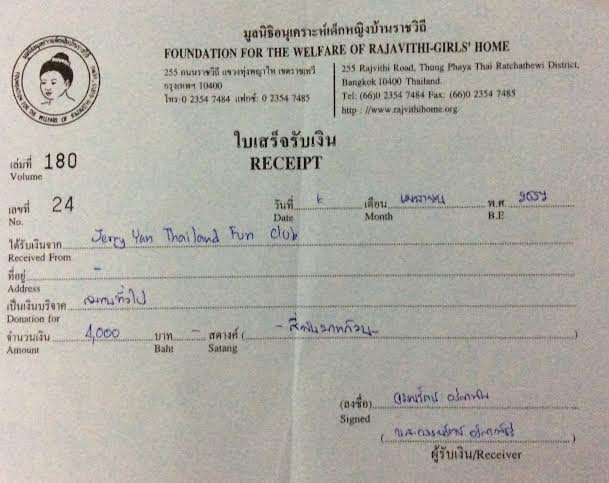 มูลนิธิอนุเคราะห์เด็กหญิงบ้านราชวิถี
FOUNDATION FOR THE WELFARE OF RAJAVITHI-GIRLS' HOME
255 ถนนราชวิถี แขวงทุ่งพญาไท เขตราชเทวี
กรุงเทพฯ 10400
โทร: 0 2354 7484 แฟกซ์: 0 2354 7485
255 Rajvithi Road, Thung Phaya Thai Ratchathewi District,
Bangkok 10400 Thailand.
Tel: (66)0 2354 7484 Fax: (66)0 2354 7485
http : //www.rajvithihome.org
ใบเสร็จรับเงิน
RECEIPT
เล่มที่ 180
Volume
เลขที่ 24
No.
วันที่ เดือน เมษายน พ.ศ. 2557
Date Month B.E
ได้รับเงินจาก Jerry Yan Thailand Fun Club
Received From
ที่อยู่ -
Address
เป็นเงินบริจาค
Donation for
จำนวนเงิน 4,000 บาท - สตางค์ ( - สี่พันบาทถ้วน - )
Amount Baht Satang
(ลงชื่อ)
Signed
ผู้รับเงิน/Receiver